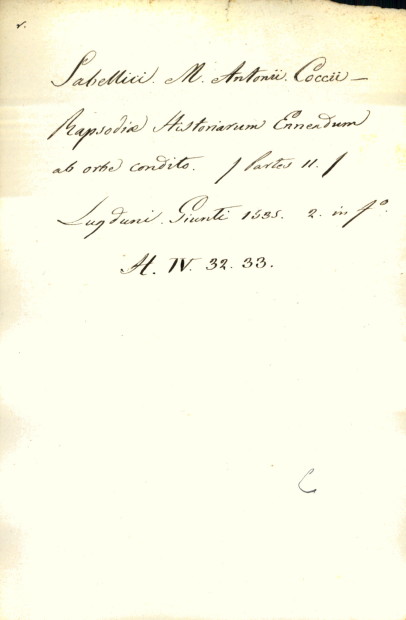 r.
Sabellici. M. Antonii. Coccii —
Rapsodiæ Historiarum Enneadum
ab orbe condito. / Partes II. /
Lugduni. Giunti 1535. 2. in fº.
H. IV. 32. 33.
C